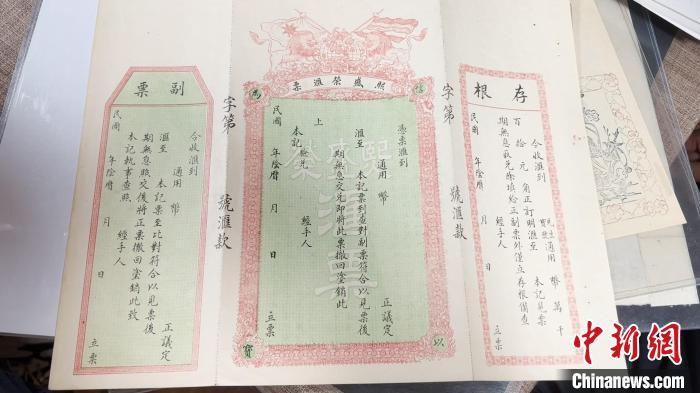 存根
今收滙到
通用 幣 萬 千
百 拾 元 角正訂明滙至 本記見票
期無息取兌除填給正副票外僅立存根備查
經手人
民國 年陰曆 月 日 立票
字第 號滙款
熙盛榮滙票
以
信
為
寶
憑票滙到
通用 幣 正議定
滙至 本記票到查對副票符合以見票後
期無息交兌即將此票撤回塗銷此
上
本記驗兌 經手人
民國 年陰曆 月 日 立票
熙盛榮
滙票
字第 號滙款
副票
今收滙到
通用 幣 正議定
滙至 本記票至比對符合以見票後
期無息照交後將正票撤回塗銷此致
本記執事查照 經手人
民國 年陰曆 月 日 立票
中新网
Chinanews.com